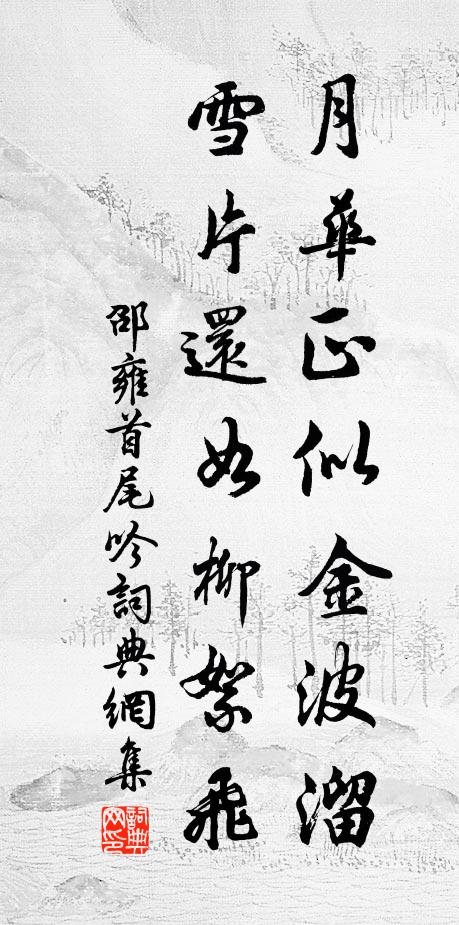 月華正似金波溜
雪片還如柳絮飛
邵雍首尾吟詞典網集
詞典網印